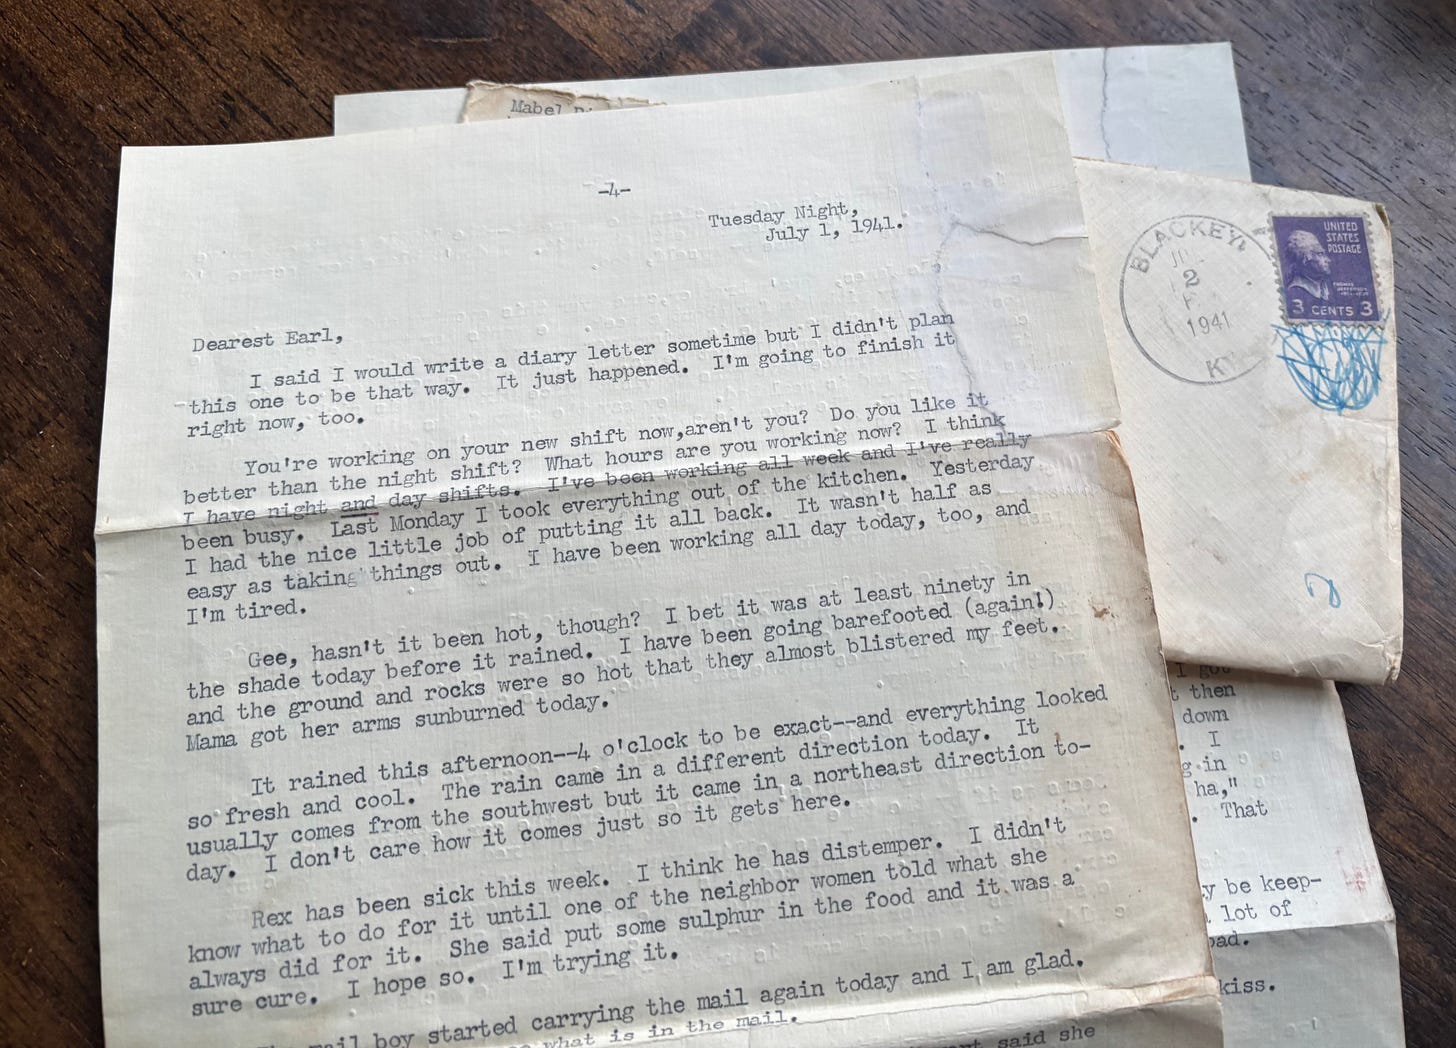 Mabel
-4-
Tuesday Night,
July 1, 1941.
Dearest Earl,
I said I would write a diary letter sometime but I didn't plan
this one to be that way. It just happened. I'm going to finish it
right now, too.
You're working on your new shift now,aren't you? Do you like it
better than the night shift? What hours are you working now? I think
I have night and day shifts. I've been working all week and I've really
been busy. Last Monday I took everything out of the kitchen. Yesterday
I had the nice little job of putting it all back. It wasn't half as
easy as taking things out. I have been working all day today, too, and
I'm tired.
Gee, hasn't it been hot, though? I bet it was at least ninety in
the shade today before it rained. I have been going barefooted (again!)
and the ground and rocks were so hot that they almost blistered my feet.
Mama got her arms sunburned today.
It rained this afternoon--4 o'clock to be exact--and everything looked
so fresh and cool. The rain came in a different direction today. It
usually comes from the southwest but it came in a northeast direction to-
day. I don't care how it comes just so it gets here.
Rex has been sick this week. I think he has distemper. I didn't
know what to do for it until one of the neighbor women told what she
always did for it. She said put some sulphur in the food and it was a
sure cure. I hope so. I'm trying it.
mail boy started carrying the mail again today and I am glad.
what is in the mail.
said she
BLACKEY,
2
1941
KY
UNITED
STATES
POSTAGE
THOMAS
JEFFERSON
3 CENTS 3
I got
then
down
. I
in
ha,"
. That
be keep-
lot of
kiss.